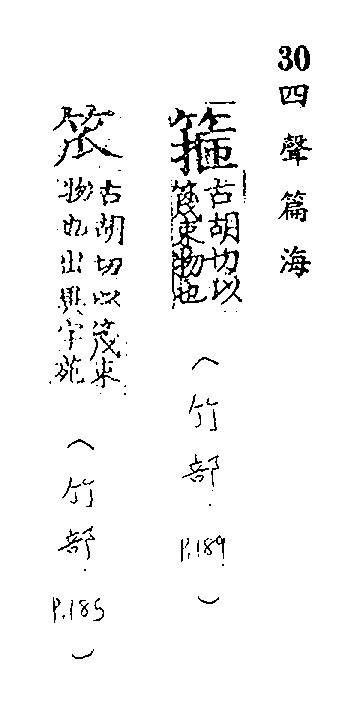 30 四聲篇海
箍 古胡切以
篾束物也
（竹部．P.189）
笟 古胡切以篾束
物也出興字苑
（竹部．P.185）